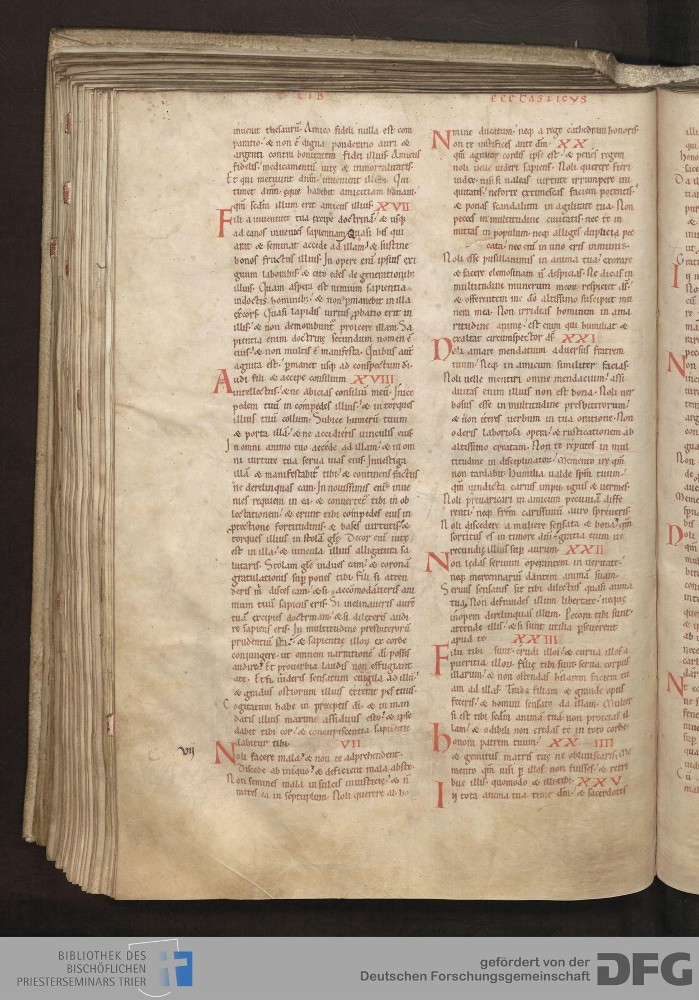 LIB
ECCLASIICVS
inuenit thesaurū. Amico fideli nulla est com
paratio. & non ē digna ponderatio auri &
argenti contra bonitatem fidei illius. Amicus
fidelis. medicamentū uitę & inmortalitatis.
Et qui metuunt dnm. inuenient illum. Qui
timet dnm. eque habebit amicitiam bonam.
qm̄ scdm illum erit amicus illius. XVII
Fili a iuuentute tua excipe doctrinā. & usq;
ad canos inuenies sapientiam. Quasi his qui
arat & seminat accede ad illam. & sustine
bonos fructus illius. In opere enī ipsius exi
guum laborabis. & cito edes de generationib;
illius. Quam aspera est nimium sapientia
indoctis hominib;. & non pmanebit in illa
excors. Quasi lapidis uirtus pbatio erit in
illis. & non demorabunt proicere illam. Sa
pientia enim doctrinę secundum nomen ē
eius. & non multis ē manifesta. Quibus aut
agnita est. pmanet usq; ad conspectum di.
Audi fili & accipe consilium XVIII
intellectus. & ne abicias consiliū meū. Inice
pedem tuū in compedes illius. & in torques
illius tuū collum. Subice humerū tuum
& porta illā. & ne accidieris uinculis eius.
In omni animo tuo accede ad illam. & in om
ni uirtute tua serua uias eius. Inuestiga
illā & manifestabit tibi. & continens factus
ne derelinquas eam. In nouissimis enī inue
nies requiem in ea. & conuertet tibi in ob
lectationem. & erunt tibi compedes eius in
ptectione fortitudinis. & bases uirtutis. &
torques illius in stolā glę. Decor enī uitę
est in illa. & uincula illius alligatura sa
lutaris. Stolam glę indues eam. & coronā
gratulationis suppones tibi. Fili si atten
deris m disces eam. & si accomodaueris ani
mum tuū sapiens eris. Si inclinaueris aurē
tuā excipies doctrinam. & si dilexeris audi
re sapiens eris. In multitudine presbiterorū
prudentiū sta. & sapientię illoꝝ ex corde
coniungere. ut omnem narrationē di possis
audire. Et prouerbia laudis non effugiant
a te. Et si uideris sensatum euigila ad illū.
& gradus ostiorum illius exterat pes tuus.
Cogitatum habe in preceptis di. & in man
datis illius maxime assiduus esto. & ipse
dabit tibi cor. & concupiscentia sapientie
dabitur tibi. VII
VII
Noli facere mala. & non te adprehendent.
Discede ab iniquo. & deficient mala abs te.
Non semines mala in sulcis iniusticie. & n
metes ea in septuplum. Noli querere ab ho
Nmine ducatum. neq; a rege cathedram honoris.
Non te iustifices ante dm. XX
qm̄ agnitor cordis ipse est. & penes regem
noli uelle uideri sapiens. Noli querere fieri
iudex. nisi si ualeas uirtute irrumpere ini
quitates. ne forte extimescas faciem potentis.
& ponas scandalum in agilitate tua. Non
pecces in multitudine ciuitatis. nec te in
mittas in populum. neq; alliges duplicia pec
cata. nec enī in uno eris inmunis.
Noli esse pusillanimis in anima tua. exorare
& facere elemosinam ñ despicias. Ne dicas in
multitudine munerum meoꝝ respiciet ds.
& offerentem me dō altissimo suscipiet mu
nera mea. Non irrideas hominem in ama
ritudine animę. est enim qui humiliat &
exaltat circumspector ds. XXI
Noli amare mendacium aduersus fratrem
tuum. Neq; in amicum similiter facias.
Noli uelle mentiri omne mendacium. assi
duitas enim illius non est bona. Noli uer
bosus esse in multitudine presbiterorum.
& non iteres uerbum in tua oratione. Non
oderis laboriosa opera. & rusticationem ab
altissimo creatam. Non te reputes in mul
titudine indisciplinatoꝝ. Memento irę qm̄
non tardabit. Humilia ualde spm̄ tuum.
qm̄ uindicta carnis impii. ignis & uermis.
Noli preuaricari in amicum pecuniā diffe
renti. neq; frem carissimū auro spreueris.
Noli discedere a muliere sensata & bona. qm̄
sortitus es in timore dni. gratia enim ue
recundię illius sup aurum. XXII
Non ledas seruum operantem in ueritate.
neq; mercennariū dantem animā suam.
Seruus sensatus sit tibi dilectus quasi anima
tua. Non defraudes illum libertate. neque
inopem derelinquas illum. Pecora tibi sunt.
attende illis. & si sunt utilia perseuerent
apud te XXIII
Filii tibi sunt. erudi illos. & curua illos a
pueritia illoꝝ. Filię tibi sunt. serua corpus
illarum. & non ostendas hilarem faciem tu
am ad illas. Trade filiam. & grande opus
feceris. & homini sensato da illam. Mulier
si est tibi scdm animā tuā non proicias il
lam. & odibili non credas te in toto corde.
Honora patrem tuum. XXIIII
& gemitus matris tuę ne obliuiscaris. me
mento qm̄ nisi p illos non fuisses. & retri
bue illis. quomodo & illi tibi. XXV
In tota anima tua time dm. & sacerdotes
BIBLIOTHEK DES
BISCHÖFLICHEN
PRIESTERSEMINARS TRIER
gefördert von der
Deutschen Forschungsgemeinschaft
DFG